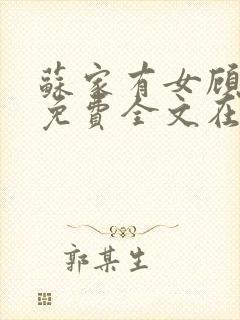 蘇家有女顧
免費全文在
郭某生